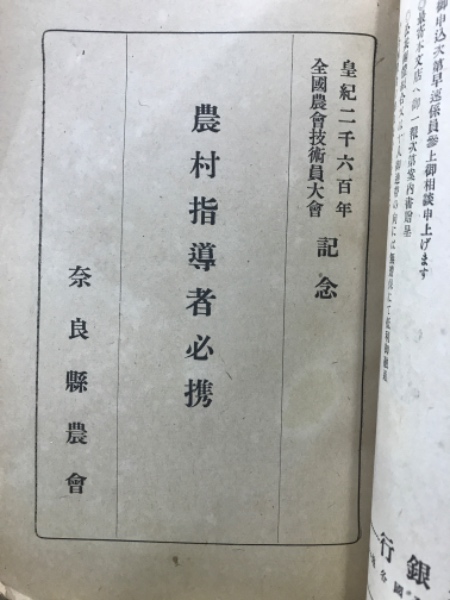 御申込次第早速係員參上御相談申上げます
皇紀二千六百年
全國農會技術員大會
記念
農村指導者必携
奈良縣農會
銀行